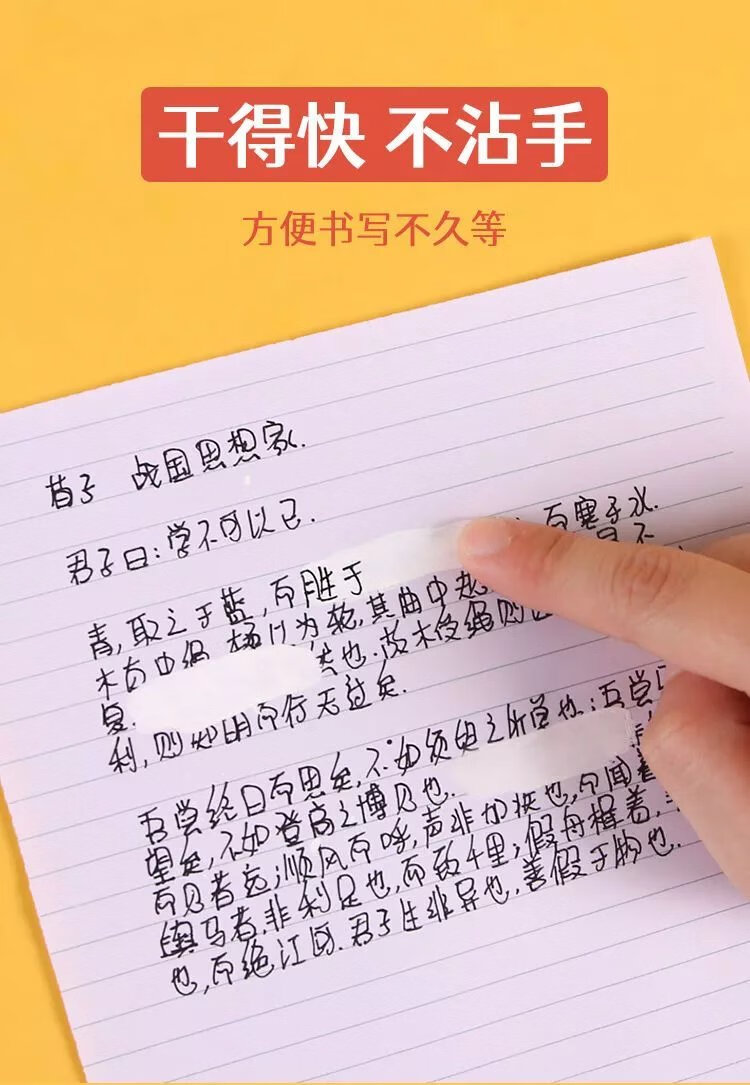 干得快 不沾手
方便书写不久等
荀子 战国思想家.
君子曰:学不可以已.
青,取之于蓝,而胜于 而寒于水.
木直中绳 以为轮,其曲中 不
然也.故木受绳则
利,则知明而行无过矣.
吾尝终日而思矣,不如须臾之所学也;吾尝
望矣,不如登高之博见也.
而见者远;顺风而呼,声非加疾也,而闻者
舆马者,非利足也,而致千里;假舟楫者,
也,而绝江河.君子生非异也,善假于物也.